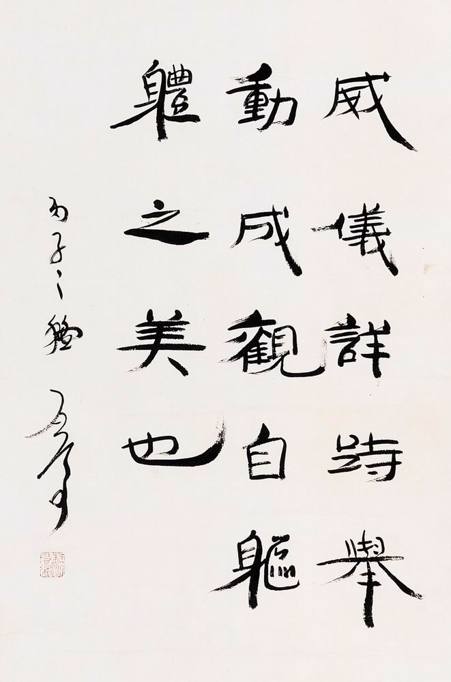 威儀詳跱舉
動成觀自軀
軆之美也
丙子之龝